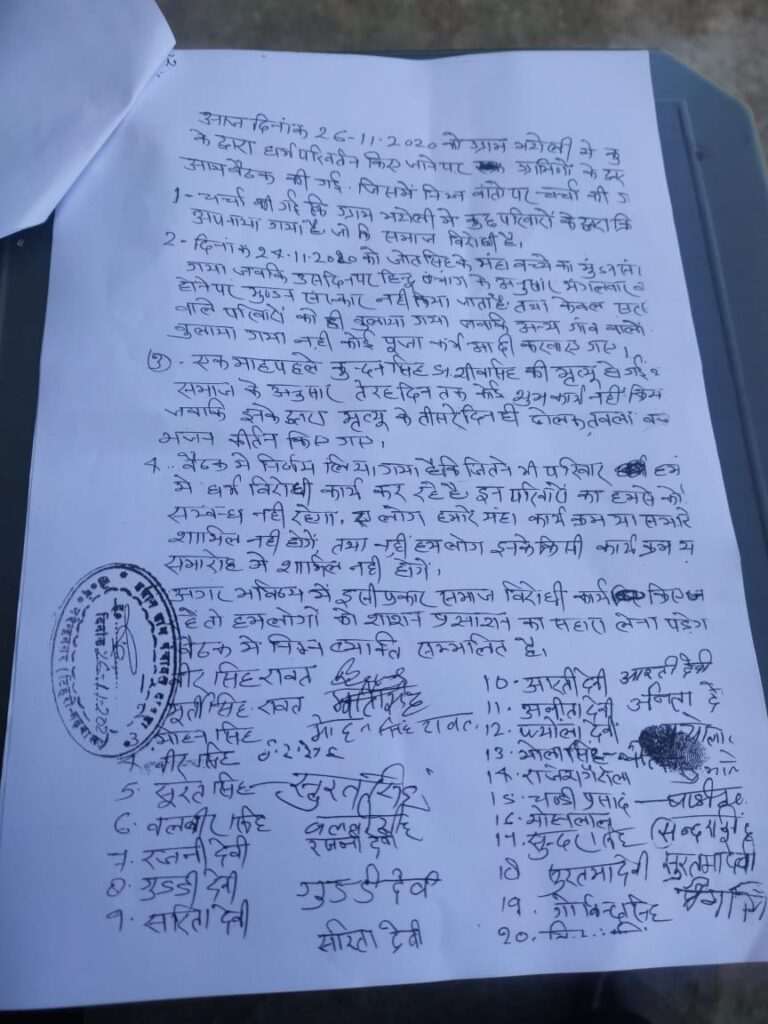 आज दिनांक 26-11-2020 को ग्राम भयोली मे कु
के द्वारा धर्म परिवर्तन किए जाने पर ग्रामिणों के द्व
आम बैठक की गई. जिसमें निम्न बातो पर चर्चा की ग
1- चर्चा की गई कि ग्राम भयोली मे कुछ परिवारों के द्वारा क्रि
अपनाया गया है, जो कि समाज विरोधी है।
2- दिनांक 24.11.2020 को जोत सिंह के यंहा बच्चे का मुंडन सं
गया जबकि उस दिन पर हिन्दु पंचाग के अनुसार मंगलवार व
होने पर मुण्डन संस्कार नहीं किया जाता है, तथा केवल
वाले परिवारों को ही बुलाया गया जबकि अन्य गांव वालो
बुलाया गया नही कोई पूजा कर्म आदी करवाए गए।
③. एक माह पहले कुन्दन सिंह S/o शीवा सिंह की मृत्यू हो गई थ
समाज के अनुसार तेरह दिन तक कोई शुभ कार्य नहीं किय
जबकि इनके द्वारा मृत्यू के तीसरे दिन ही ढोलक, तबला बज
भजन कीर्तन किए गए।
4. बैठक मे निर्णय लिया गया है कि जितने भी परिवार हम
मे धर्म विरोधी कार्य कर रहे है, इन परिवारों का हमसे को
सम्बन्ध नहीं रहेगा. ए लोग हमारे यंहा कार्य क्रम या समारो
शामिल नहीं होगें, तथा नहीं हम लोग इनके किसी कार्य क्रम य
समारोह मे शामिल नही होगें।
अगर भविष्य में इसी प्रकार समाज विरोधी कार्य किए ज
है तो हम लोगों को शासन प्रसाशन का सहारा लेना पड़ेग
बैठक मे निम्न व्यक्ति सम्मलित है।
वीर सिंह रावत
मूर्ती सिंह रावत
3. मोहन सिंह मोहन सिंह रावत
4. वीर सिंह
5. सूरत सिंह सुरत सिंह
6. बलबीर सिंह बलबीर सिंह
7. रजनी देवी रजनी देवी
8. गुड्डी देवी गुड्डी देवी
9. सरिता देवी सरिता देवी
10. आरती देवी आरती देवी
11. अनीता देवी अनिता दे
12. देवी
13. भोला सिंह
14. राजेश
15. चण्डी प्रसाद
16. मोहनलाल
17. सुन्दर सिंह सुन्दर सिंह
18 सुरतमा देवी सुरतमा देवी
19. गोविन्द सिंह
20.
प्रधान ग्राम पंचायत
दिनांक 26.11.2020